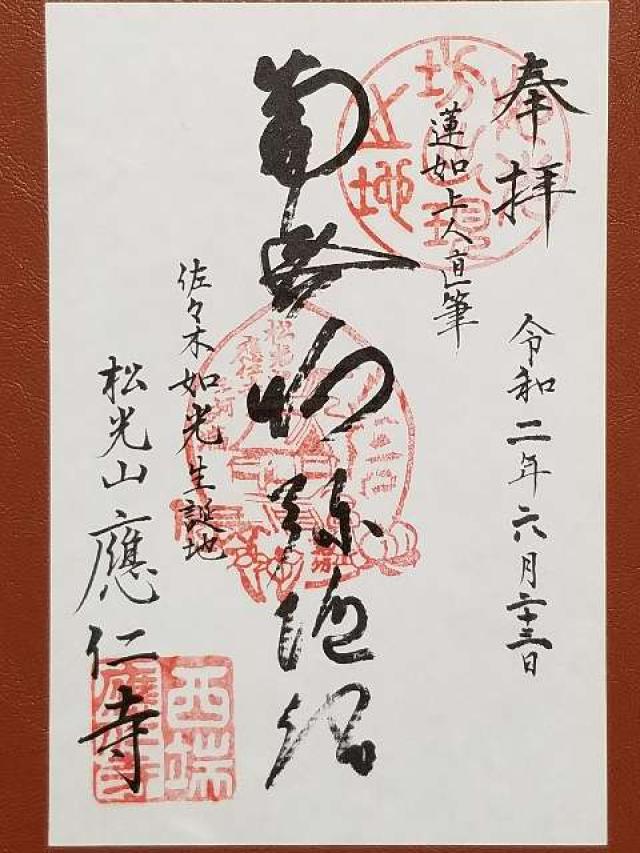 奉拝
令和二年六月二十三日
蓮如上人直筆
南無阿弥陀仏
佐々木如光生誕地
松光山應仁寺
西端
應仁寺